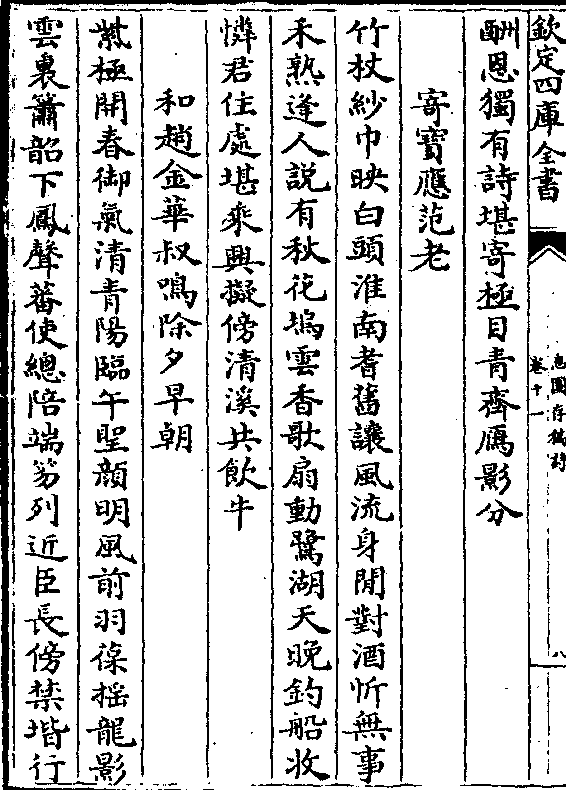 欽定四庫全書
卷十一
八
酬恩獨有詩堪寄極目青齊鴈影分
寄寶應范老
竹杖紗巾映白頭淮南耆舊讓風流身閒對酒忻無事
禾熟逢人説有秋花塢雲香歌扇動鷺湖天晚釣船收
憐君住處堪乘興擬傍清溪共飲牛
和趙金華叔鳴除夕早朝
紫極開春御氣清青陽臨午聖顔明風前羽葆揺龍影
雲裏簫韶下鳳聲蕃使總陪端笏列近臣長傍禁堦行